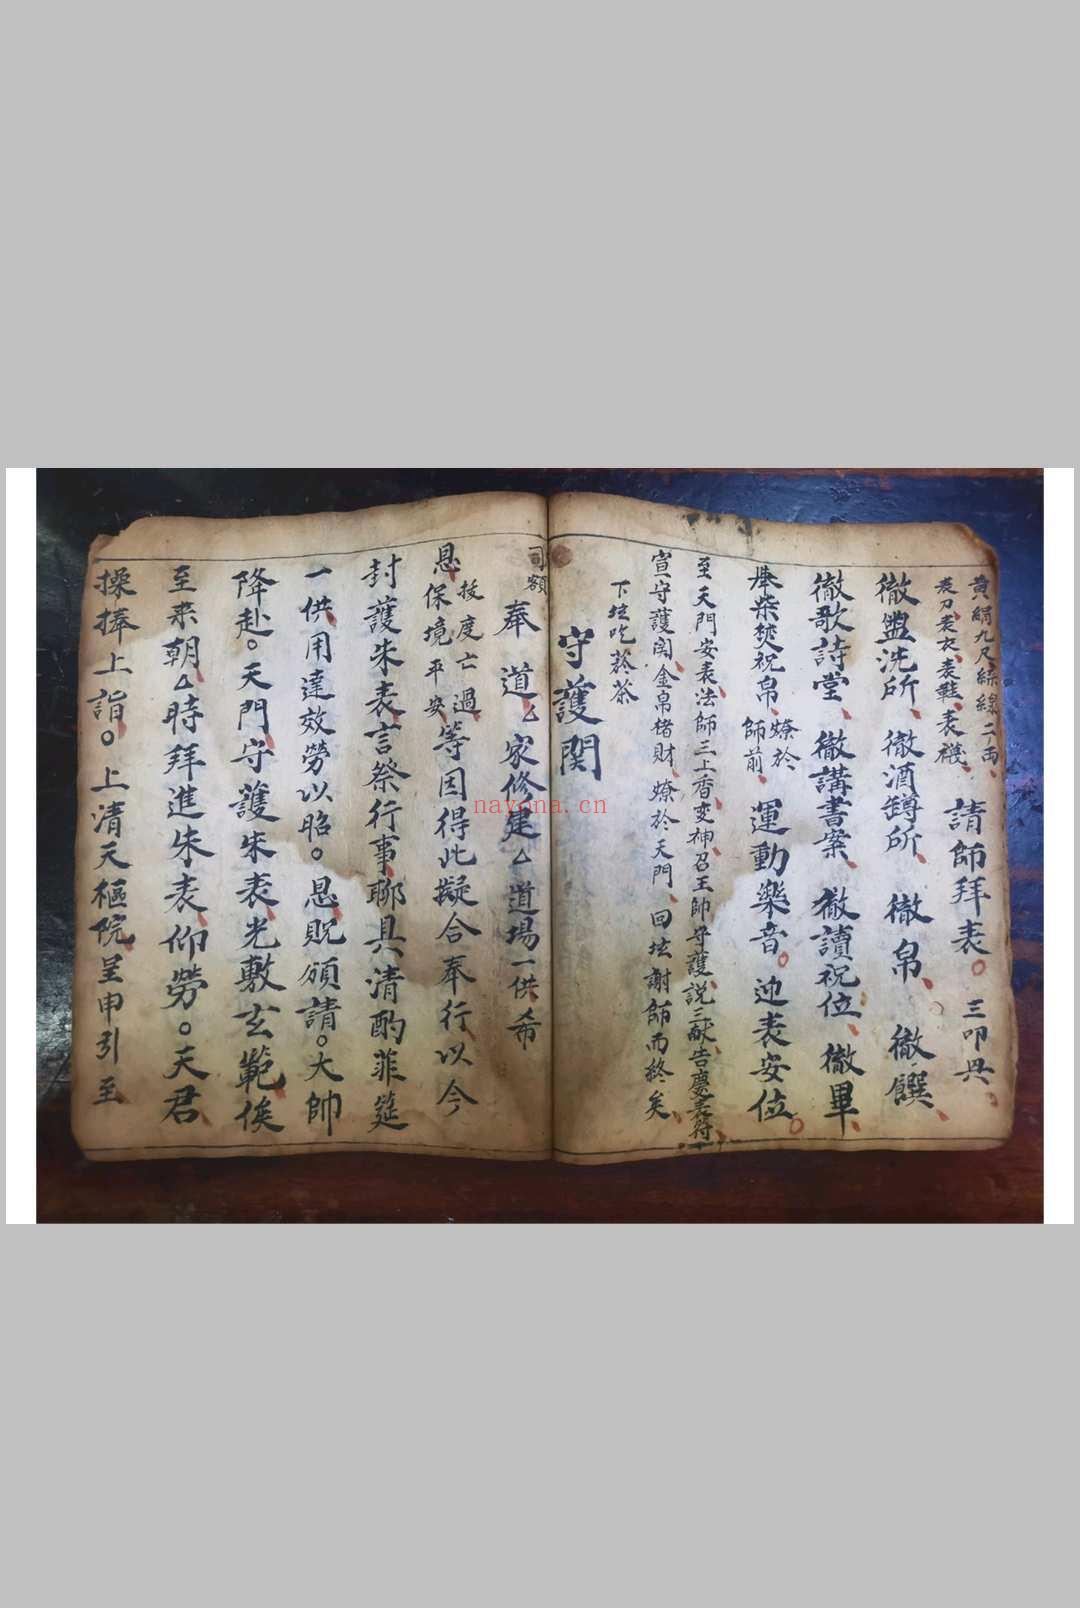 黄絹九尺、絲線二両、
表刀、表衣、表鞋、表襪、
請師拜表。三叩興、
徹盥洗所、徹酒罇所、徹帛、徹饌、
徹歌詩堂、徹講書案、徹讀祝位、徹畢、
舉柴焚祝帛、燎於師前、運動樂音。迎表安位。
至天門安表、法師三上香、变神召王帥守護、説三献、告慶表符
宣守護関、金帛楮財、燎於天門、回坛謝師而終矣、
下坛吃菸茶
守護関
司額
奉道厶家修建厶道場一供、希
恩保境平安 投度亡過等因得此擬合奉行以今
封護朱表言祭行事、聊具清酌菲筵
一供用達效勞以昭。恩貺頒請。大帥
降赴。天門守護朱表、光敷玄範、俟
至来朝厶時拜進朱表、仰勞。天君
操捧上詣。上清天樞院、呈申引至
nayona.cn